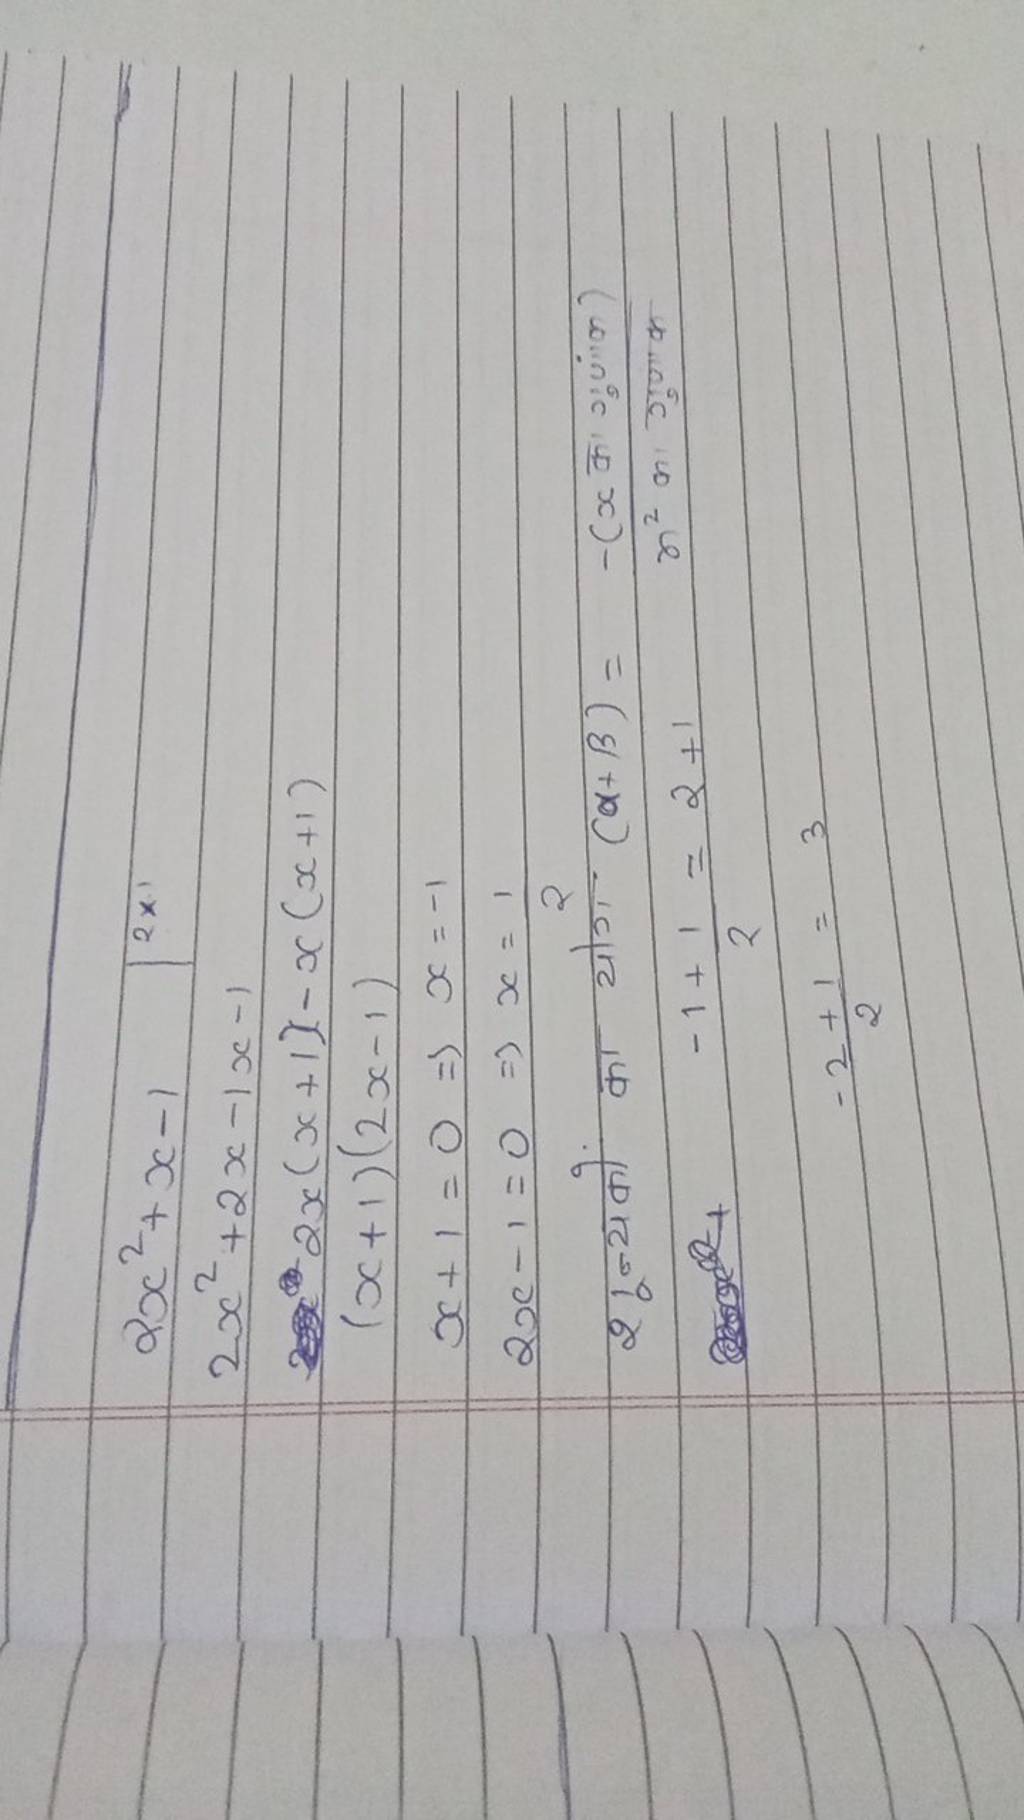 2x² + x - 1 | 2×1
2x² + 2x - 1x - 1
2x(x+1) - x(x+1)
(x+1)(2x-1)
x+1=0 ⇒ x = -1
2x-1=0 ⇒ x = 1/2
शून्यकों का योग (α+β) = -(x का गुणांक) / x² का गुणांक
-1 + 1/2 = 2+1
-2+1/2 = 3